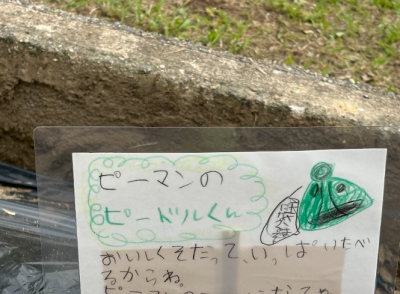 ピーマンの
ピードルくん
おいしくそだって、いっぱいたべ
るからね。
ピーマンの